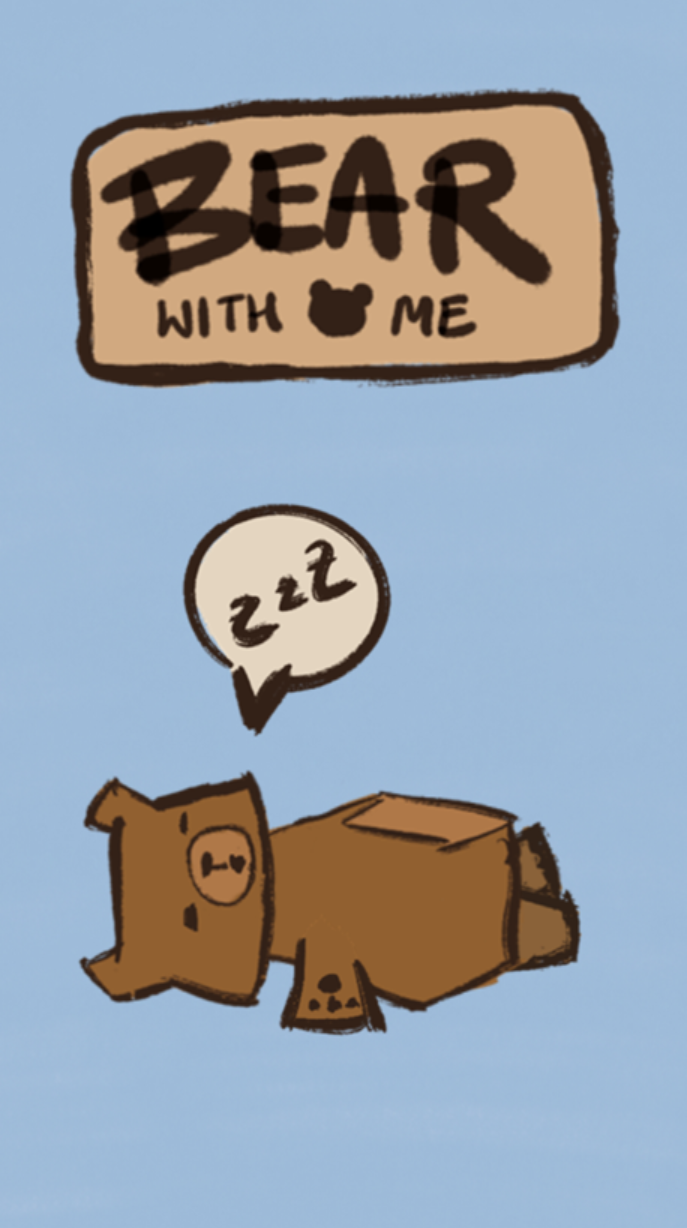 BEAR
WITH ME
zzZ